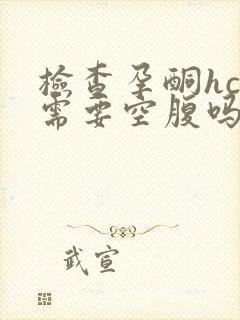 檢查孕酮hc
需要空腹吗
武宣